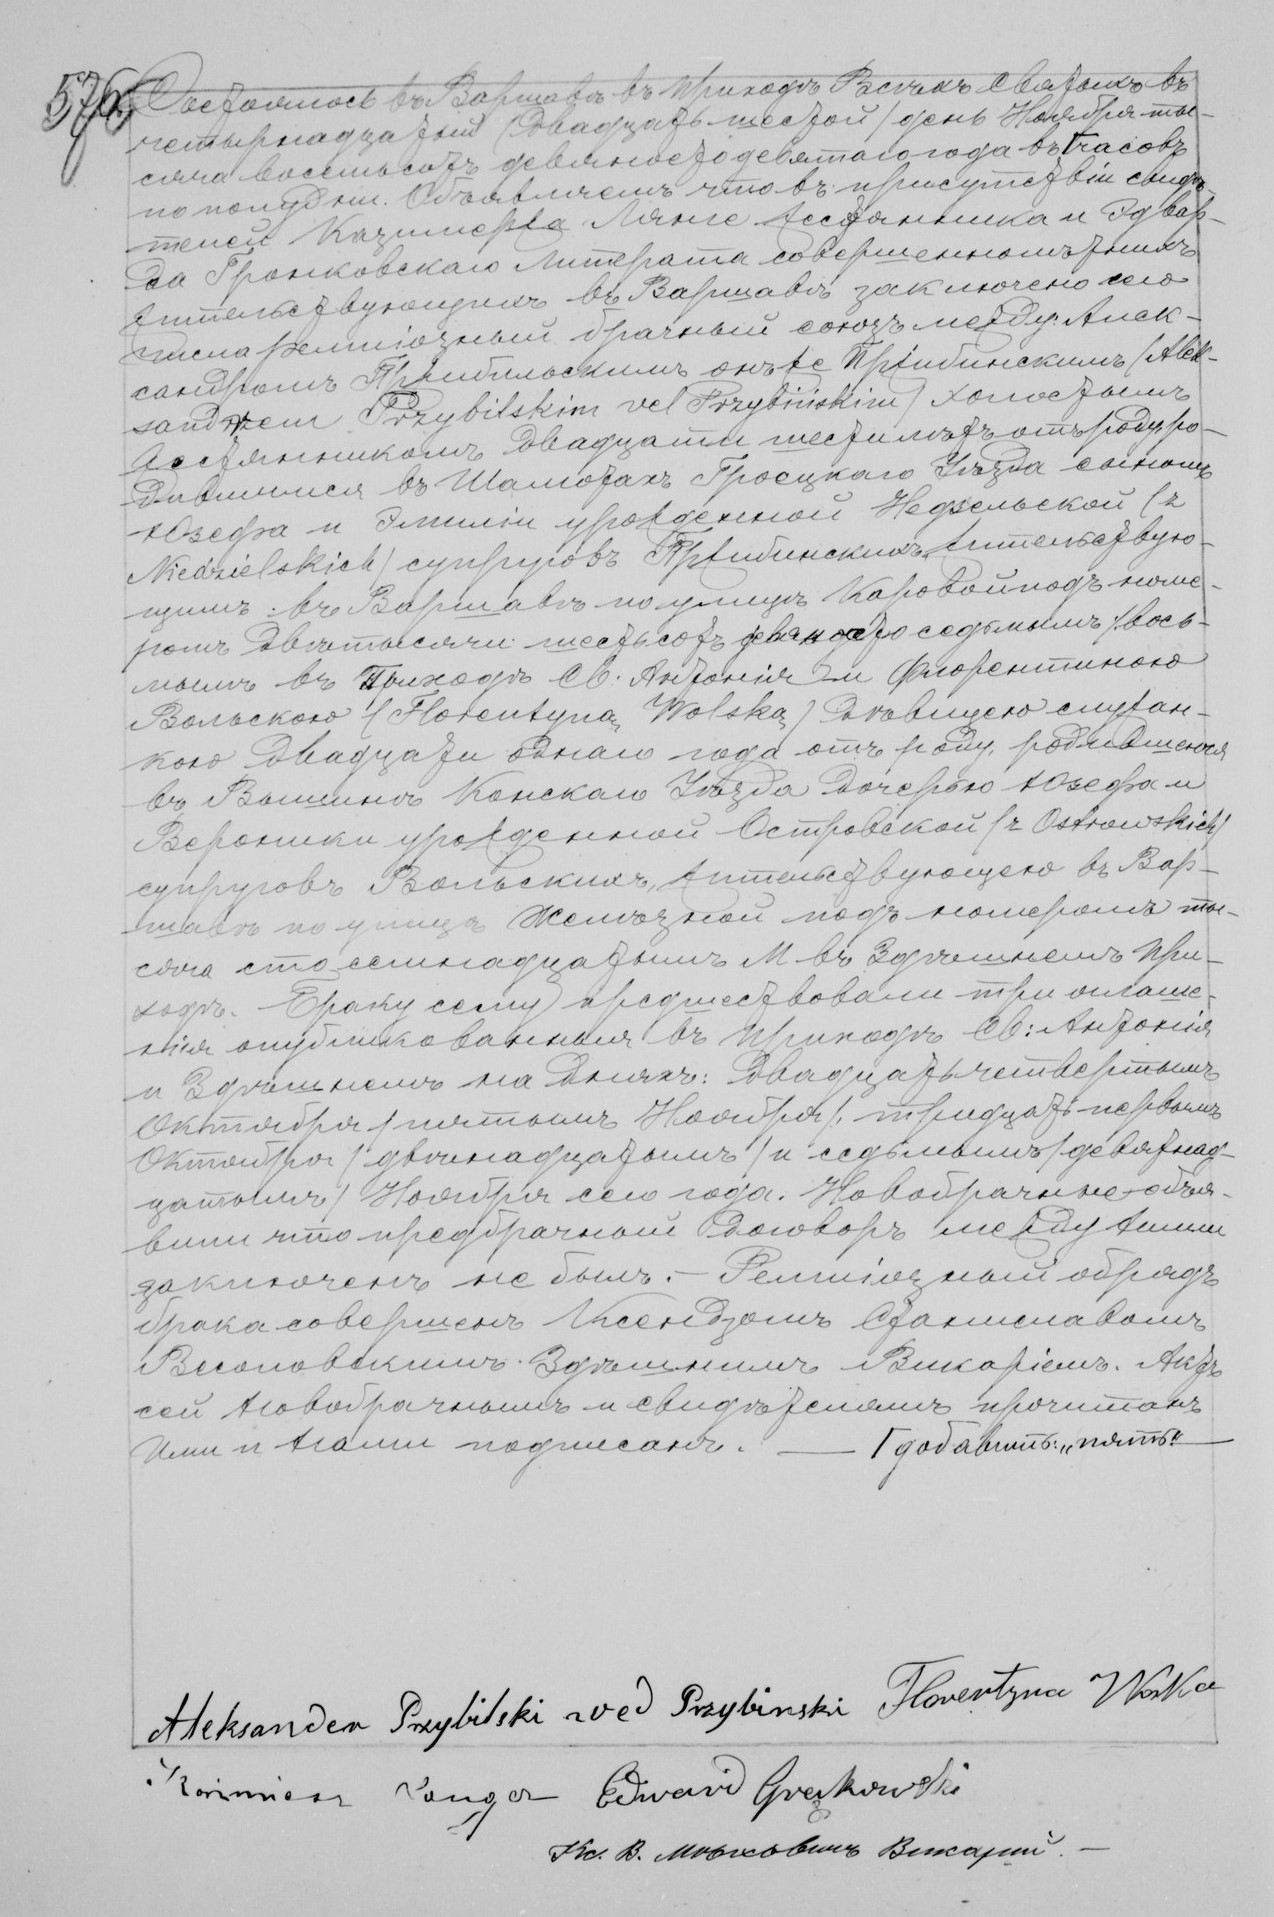 576
Состоялось въ Варшавѣ въ приходѣ Всѣхъ Святыхъ въ
четырнадцатый (двадцать шестой) день Ноября ты-
сяча восемьсотъ девяносто девятаго года въ Γ часовъ
по полудни. Объявляемъ что въ присутствіи свидѣ-
телей Казимержа Лянге жестянника и Эдвар-
да Гронковскаго Литерата совершеннолѣтнихъ
жительствующихъ въ Варшавѣ заключено сего
числа религіозный брачный союзъ между: Алек-
сандромъ Пржибильскимъ онъ же Пржибинскимъ (Alek-
sandrem Przybilskim vel Przybińskim) холостымъ
жестянникомъ двадцати шести лѣтъ отъ роду, ро-
дившимся въ Шамотахъ Гроецкаго Уѣзда сыномъ
Юзефа и Эмиліи урожденной Недзельской (z
Niedzielskich) супруговъ Пржибинскихъ, жительствую-
щимъ въ Варшавѣ по улицѣ Каровой подъ номе-
ромъ двѣ тысячи шестьсотъ девяносто седьмымъ / вось-
мымъ въ Приходѣ Св. Антонія и Флорентиною
Вольскою (Florentyną Wolską) дѣвицею служан-
кою двадцати одного года отъ роду, родившеюся
въ Конскаго Уѣзда дочерью Юзефа и
Вероники урожденной Островской (z Ostrowskich)
супруговъ Вольскихъ, жительствующею въ Вар-
шавѣ по улицѣ Желѣзной подъ номеромъ ты-
сяча сто семнадцатымъ М въ здѣшнемъ При-
ходѣ. Браку сему предшествовали три оглаше-
нія опубликованныя въ приходѣ Св: Антонія
и Здѣшнемъ на дняхъ: двадцать четвертымъ
Октября (пятымъ Ноября), тридцать первымъ
Октября (двѣнадцатымъ) и седьмымъ (девятнад-
цатымъ) Ноября сего года. Новобрачные объя-
вили что предбрачный договоръ между ними
заключенъ не былъ. — Религіозный обрядъ
брака совершенъ Ксендзомъ Станиславомъ
Весоловскимъ Здѣшнимъ Викаріемъ. Актъ
сей Новобрачнымъ и свидѣтелямъ прочитанъ
Ими и Нами подписанъ. — Γ добавить: „пять“ —
Aleksander Przybilski vel Przybinski Florentyna Wolska
Kazimierz Lange Edward Grąkowski
Кс. В. Викарій. —